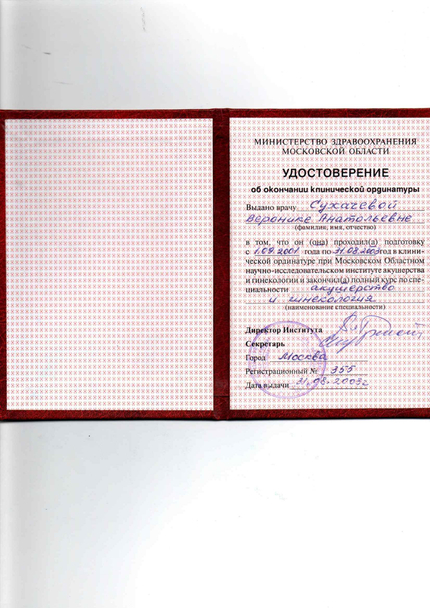 МИНИСТЕРСТВО ЗДРАВООХРАНЕНИЯ
МОСКОВСКОЙ ОБЛАСТИ
УДОСТОВЕРЕНИЕ
об окончании клинической ординатуры
Выдано врачу Сухачевой
Веронике Анатольевне
(фамилия, имя, отчество)
в том, что он (она) проходил(а) подготовку
с 1.09.2001 года по 31.08.2003 год в клини-
ческой ординатуре при Московском Областном
научно-исследовательском институте акушерства
и гинекологии и закончил(а) полный курс по спе-
циальности акушерство
и гинекология
(наименование специальности)
Директор Института
Секретарь
Город Москва
Регистрационный № 355
Дата выдачи 31.08.2003г